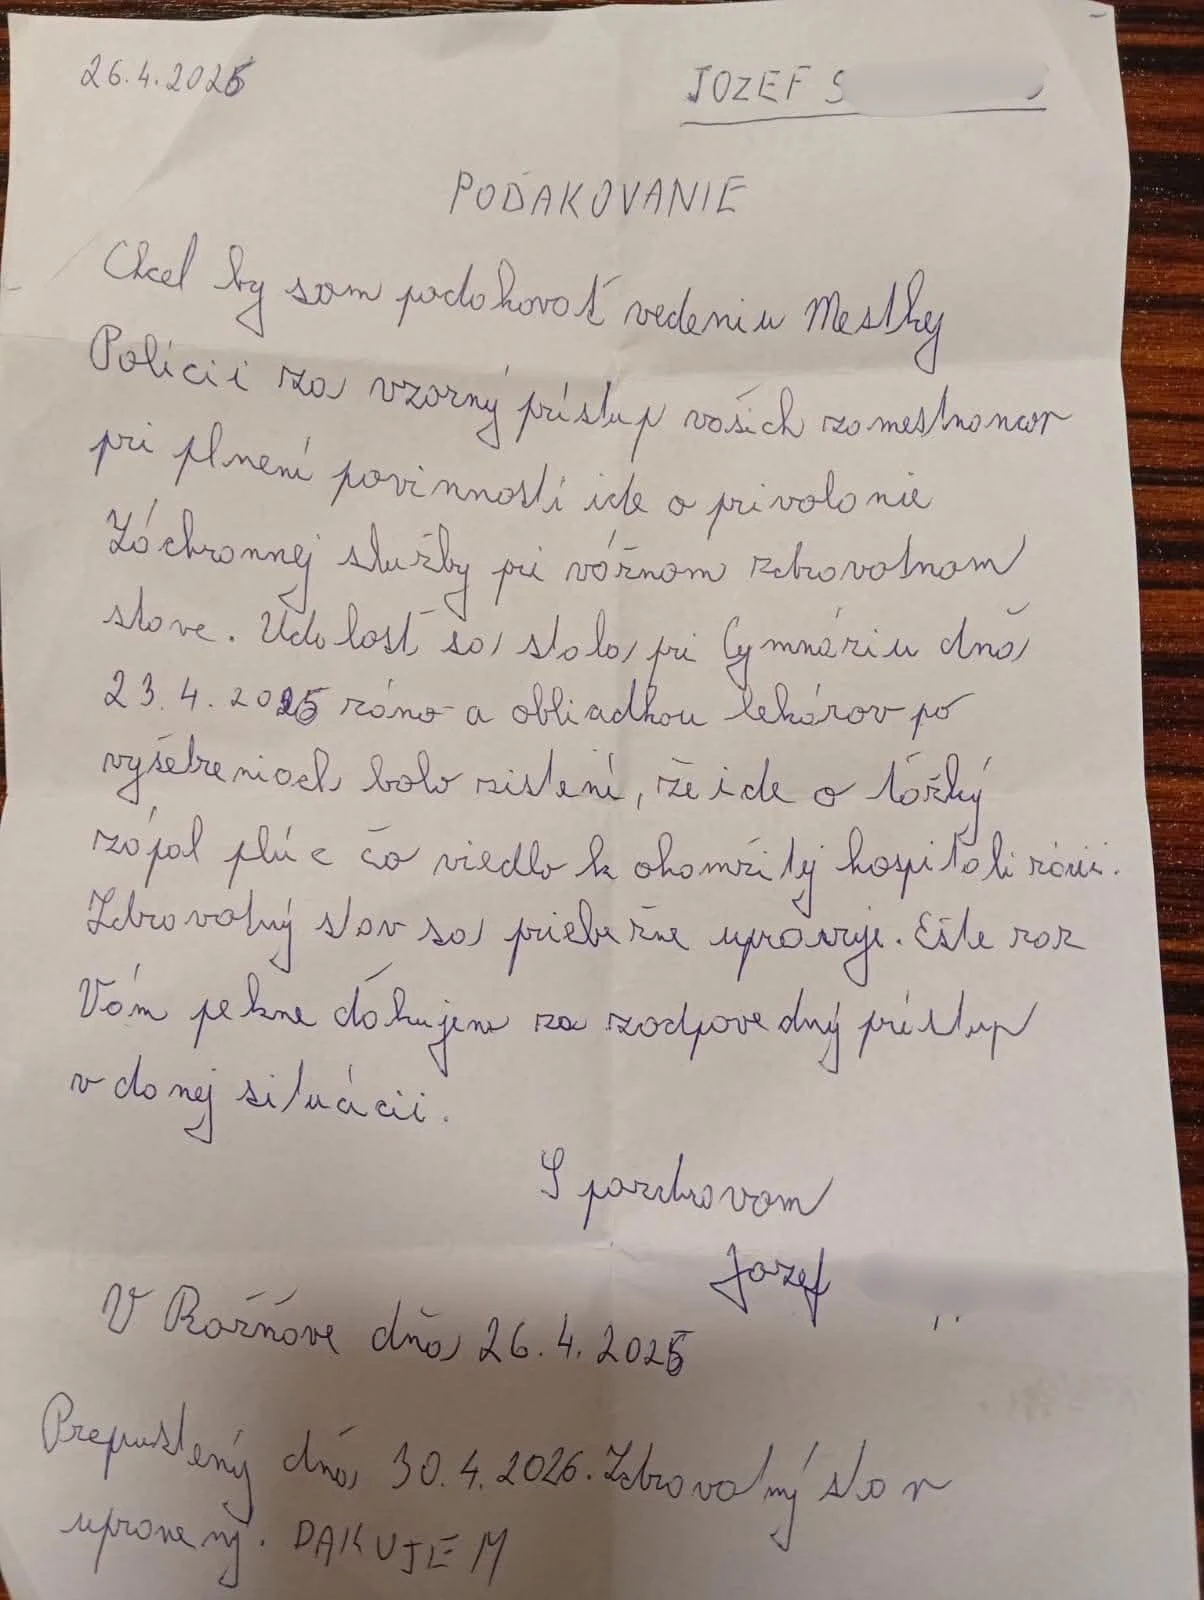 26.4.2026
JOZEF S
POĎAKOVANIE
Chcel by som poďakovať vedeniu Mestky
Polícii za vzorný prístup vašich zamestnancov
pri plnení povinností ide o privolanie
Záchrannej služby pri vážnom zdravotnom
stave. Udalosť sa stala pri Gymnáziu dňa
23.4.2026 ráno a obliadkou lekárov po
vyšetreniach bolo zistení, že ide o ťážký
zápal plúc čo viedlo k okamžitej hospitalizácii.
Zdravotný stav sa priebežne upravuje. Ešte raz
Vám pekne ďakujem za zodpovedný prístup
v danej situácii.
S pozdravom
Jozef
V Rožňave dňa 26.4.2026
Prepustený dňa 30.4.2026. Zdravotný stav
upravený. ĎAKUJEM